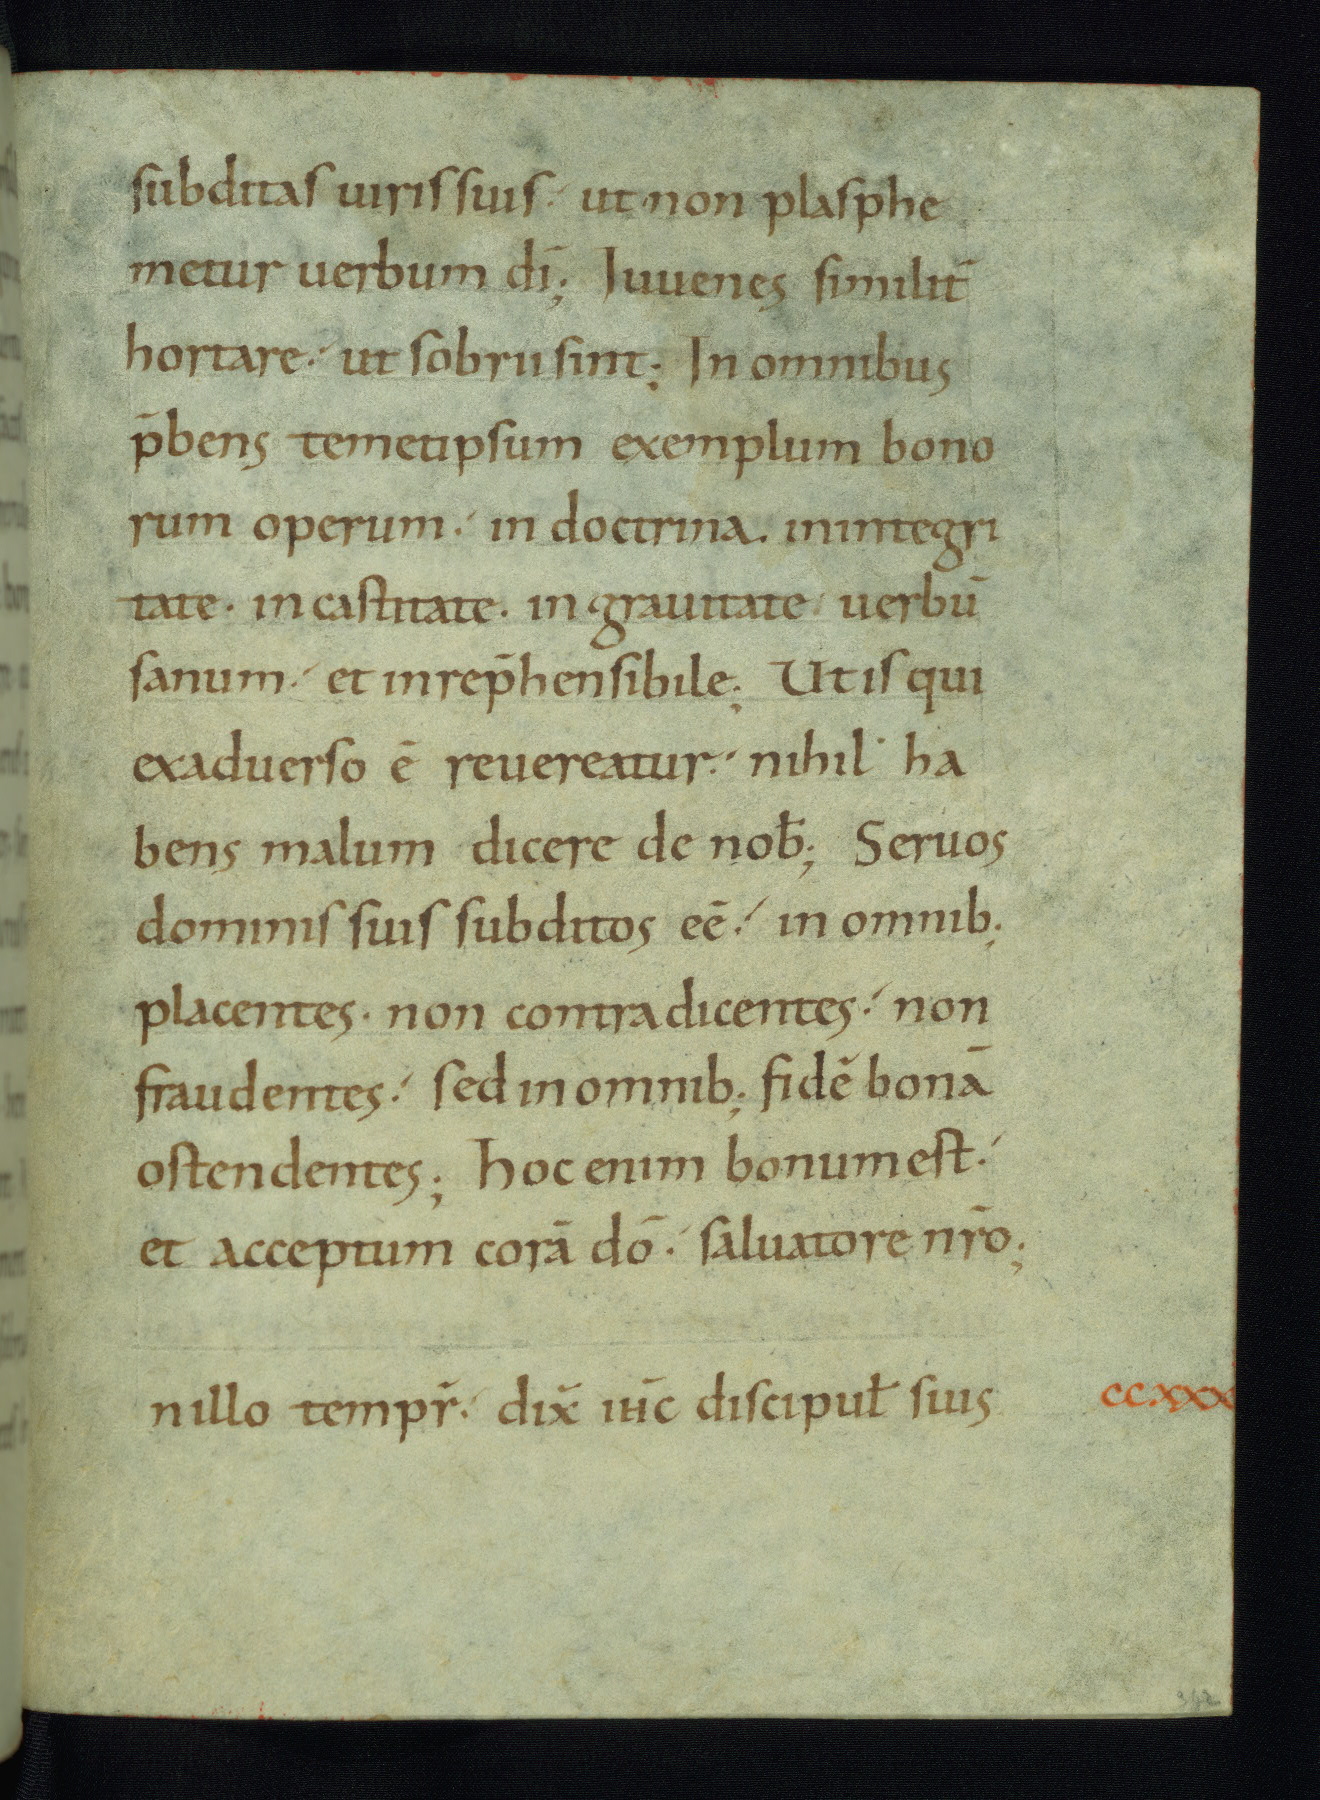 subditas uiris suis· ut non plasphe
metur uerbum dī; Iuuenes similit̄
hortare· ut sobrii sint; In omnibus
p̄bens temetipsum exemplum bono
rum operum· in doctrina. inintegri
tate· in castitate· in grauitate· uerbū
sanum· et inrep̄hensibile; Ut is qui
exaduerso ē reuereatur· nihil ha
bens malum dicere de nob̄; Seruos
dominis suis subditos eē· in omnib;
placentes· non contradicentes· non
fraudentes· sed in omnib; fidē bonā
ostendentes; hoc enim bonum est·
et acceptum corā dō· saluatore nr̄o;
nillo tempr̄· dix̄ ih̄c discipul̄ suis
ccxxx
342